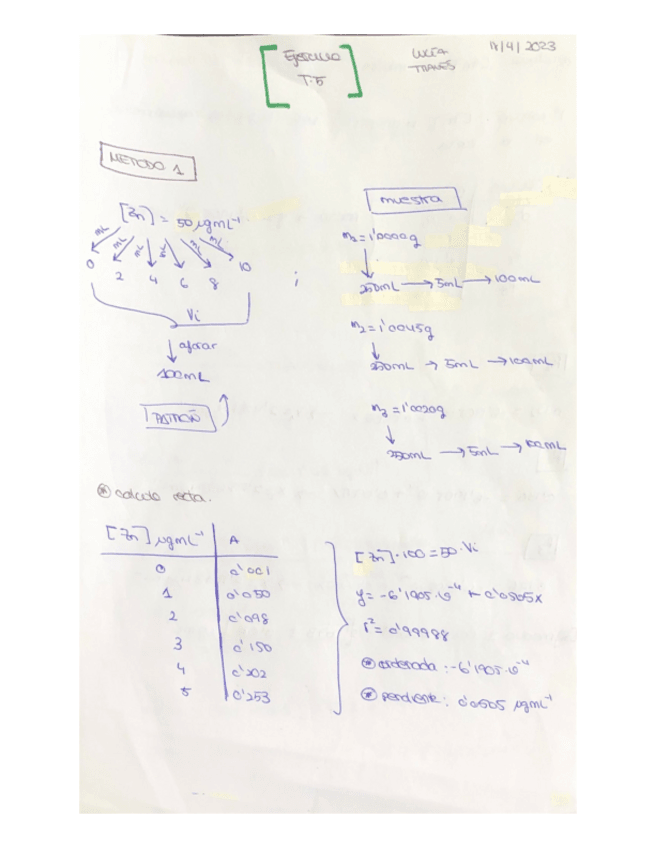 Ejercicio
T.5
LUCÍA
TRAVÉS
17/4/2023
METODO 1
[Zn] = 50 µgmL⁻¹
mL mL mL mL mL mL
0 2 4 6 8 10
Vi
aforar
100mL
PATRÓN
;
muestra
m₁=1'0000g
250mL → 5mL → 100mL
m₂=1'0045g
250mL → 5mL → 100mL
m₃=1'0020g
250mL → 5mL → 100mL
* calculo recta.
[Zn] µgmL⁻¹ A
0 0'001
1 0'050
2 0'098
3 0'150
4 0'202
5 0'253
[Zn]·100=50·Vi
y=-6'1905·10⁻⁴ + 0'0505x
r²=0'99988
* ordenada: -6'1905·10⁻⁴
* pendiente: 0'0505 µgmL⁻¹